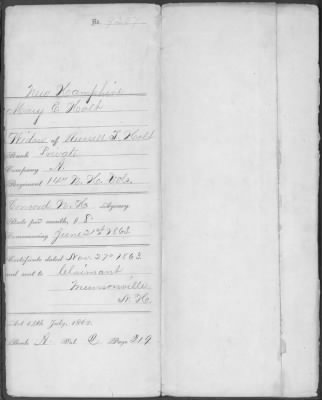 No.
New Hampshire
Mary E Holt
Widow of Holt
Rank Private
Company A
Regiment 14" N. H. Vols.
Concord N. H. Agency
Rate per month, $ 8.
Commencing June 21st 1863
Certificate dated Nov. 27" 1863
and sent to Claimant,
Munsonville
N. H.
Act 14th July, 1862.
Book A Vol. Page 219